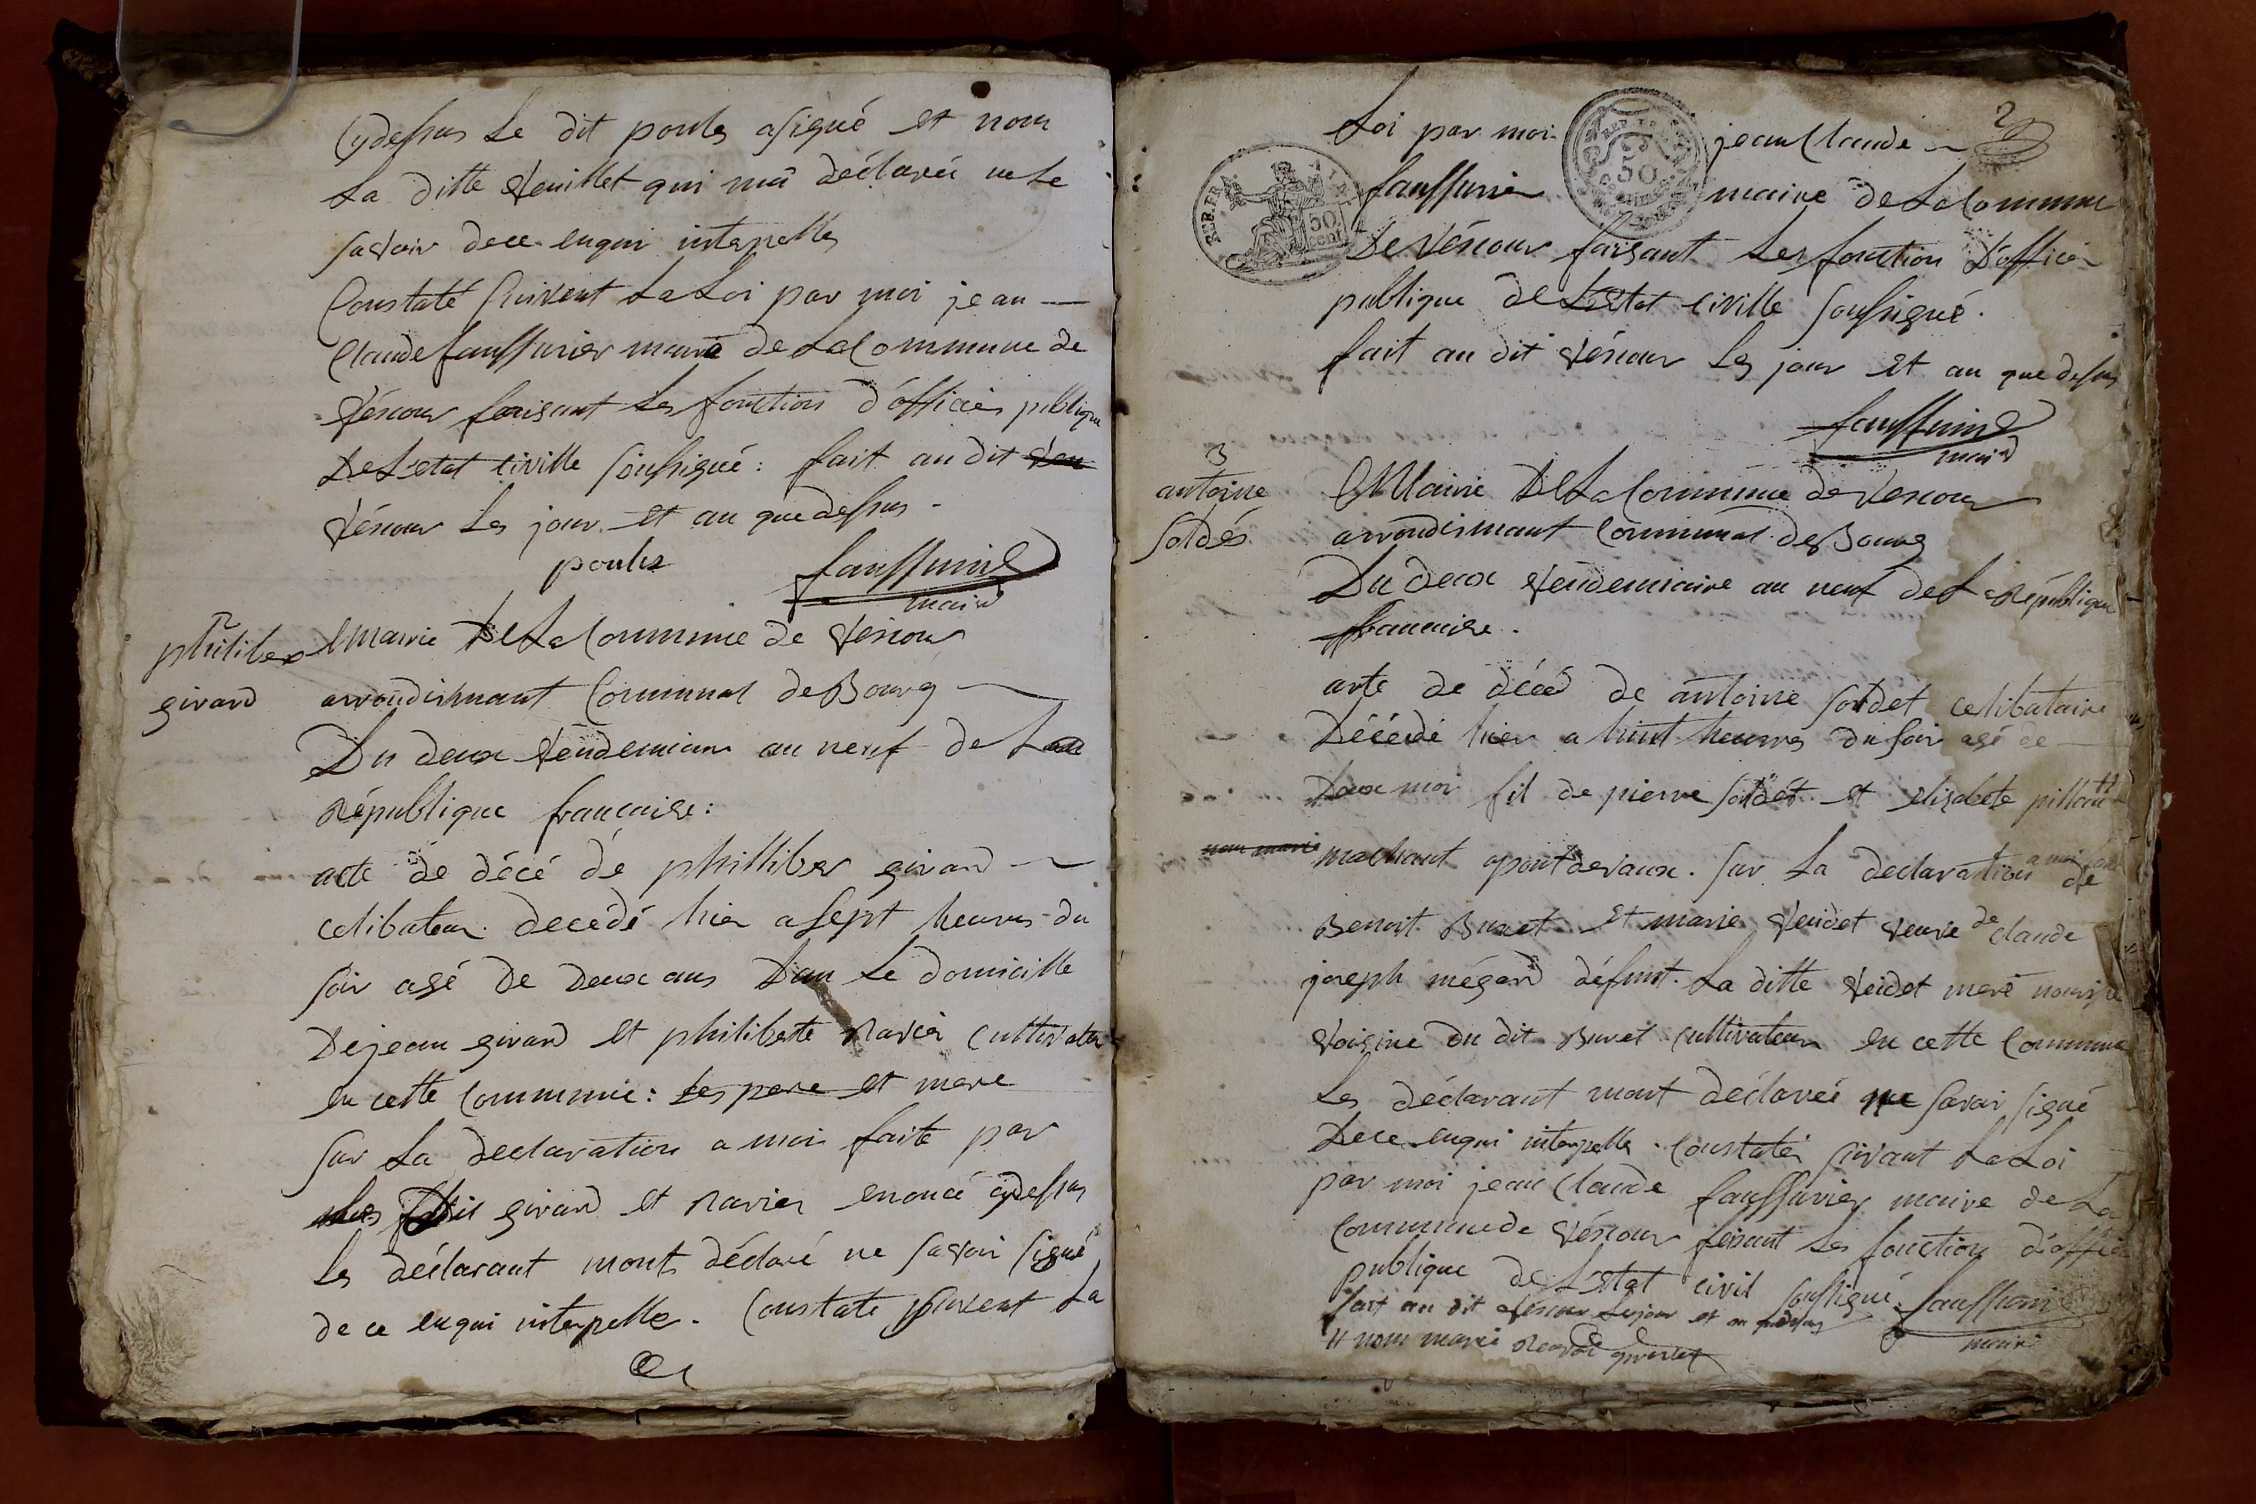 Cydessus Le dit poulz asigné et nom
La ditte Veuillet qui ma déclaréé ne Le
savoir de ce enqui interpelle
Constaté suivent La Loi par moi jean
Claude faussurier maire de La Commune de
Véscour faisant Les fonction d'officier publique
De L'etat Civille soussigné : fait au dit
Véscour Les jour et an que dessus -
poulz faussurier
maire
2
philiber
girard
Mairie De La Commune de Vescour
arrondismant Communal de Bourg
Du deux Vendemiaire an neuf de La
République francaise :
acte de décé de philliber girard
celibateur decédé hier a sept heures du
soir agé de deux ans Dan Le domicille
De jean girard et philiberte Ravier Cultivateur
en cette Commune : Les pere et mere
sur La declaration a moi faite par
Les dit girard et Ravier enoncé cydessus
Les déclarant mont déclaré ne savoir signé
de ce enqui interpelle . Constate suivent La
Loi par moi jean Claude
REP. FRA.
50
cent
50
faussurier maire de La Commune
De Véscour faisant Les fonction d'officier
publique de L'Etat Civille soussigné .
fait au dit Véscour Les jour et an que dessus
faussurier
maire
3
antoine
soldés
Mairie De La Commune de Vescour
arrondismant Communal de Bourg
Du deux Vendemiaire an neuf de La République
francaise .
acte de décé de antoine soldet celibataire
Décédé hier a huit heurres du soir agé de
Deux moi fil de pierre soldét et elisabete
marchant a pont de vaux . sur La declaration a moi faite de
Benoit Buret et marie Veudet veuve de claude
joseph mégard défunt . La ditte Veudet mere nourice
Voisine du dit Buret Cultivateur en cette Commune
Les déclarant mont declaréé ne savoir signé
De ce enqui interpelle . Constatér suivant La Loi
par moi jean Claude faussurier maire de La
Commune de Véscour faisant Les fonction d'officier
publique de L'etat civil soussigné . faussurier
fait au dit Véscour Le jour et an que dessus
maire